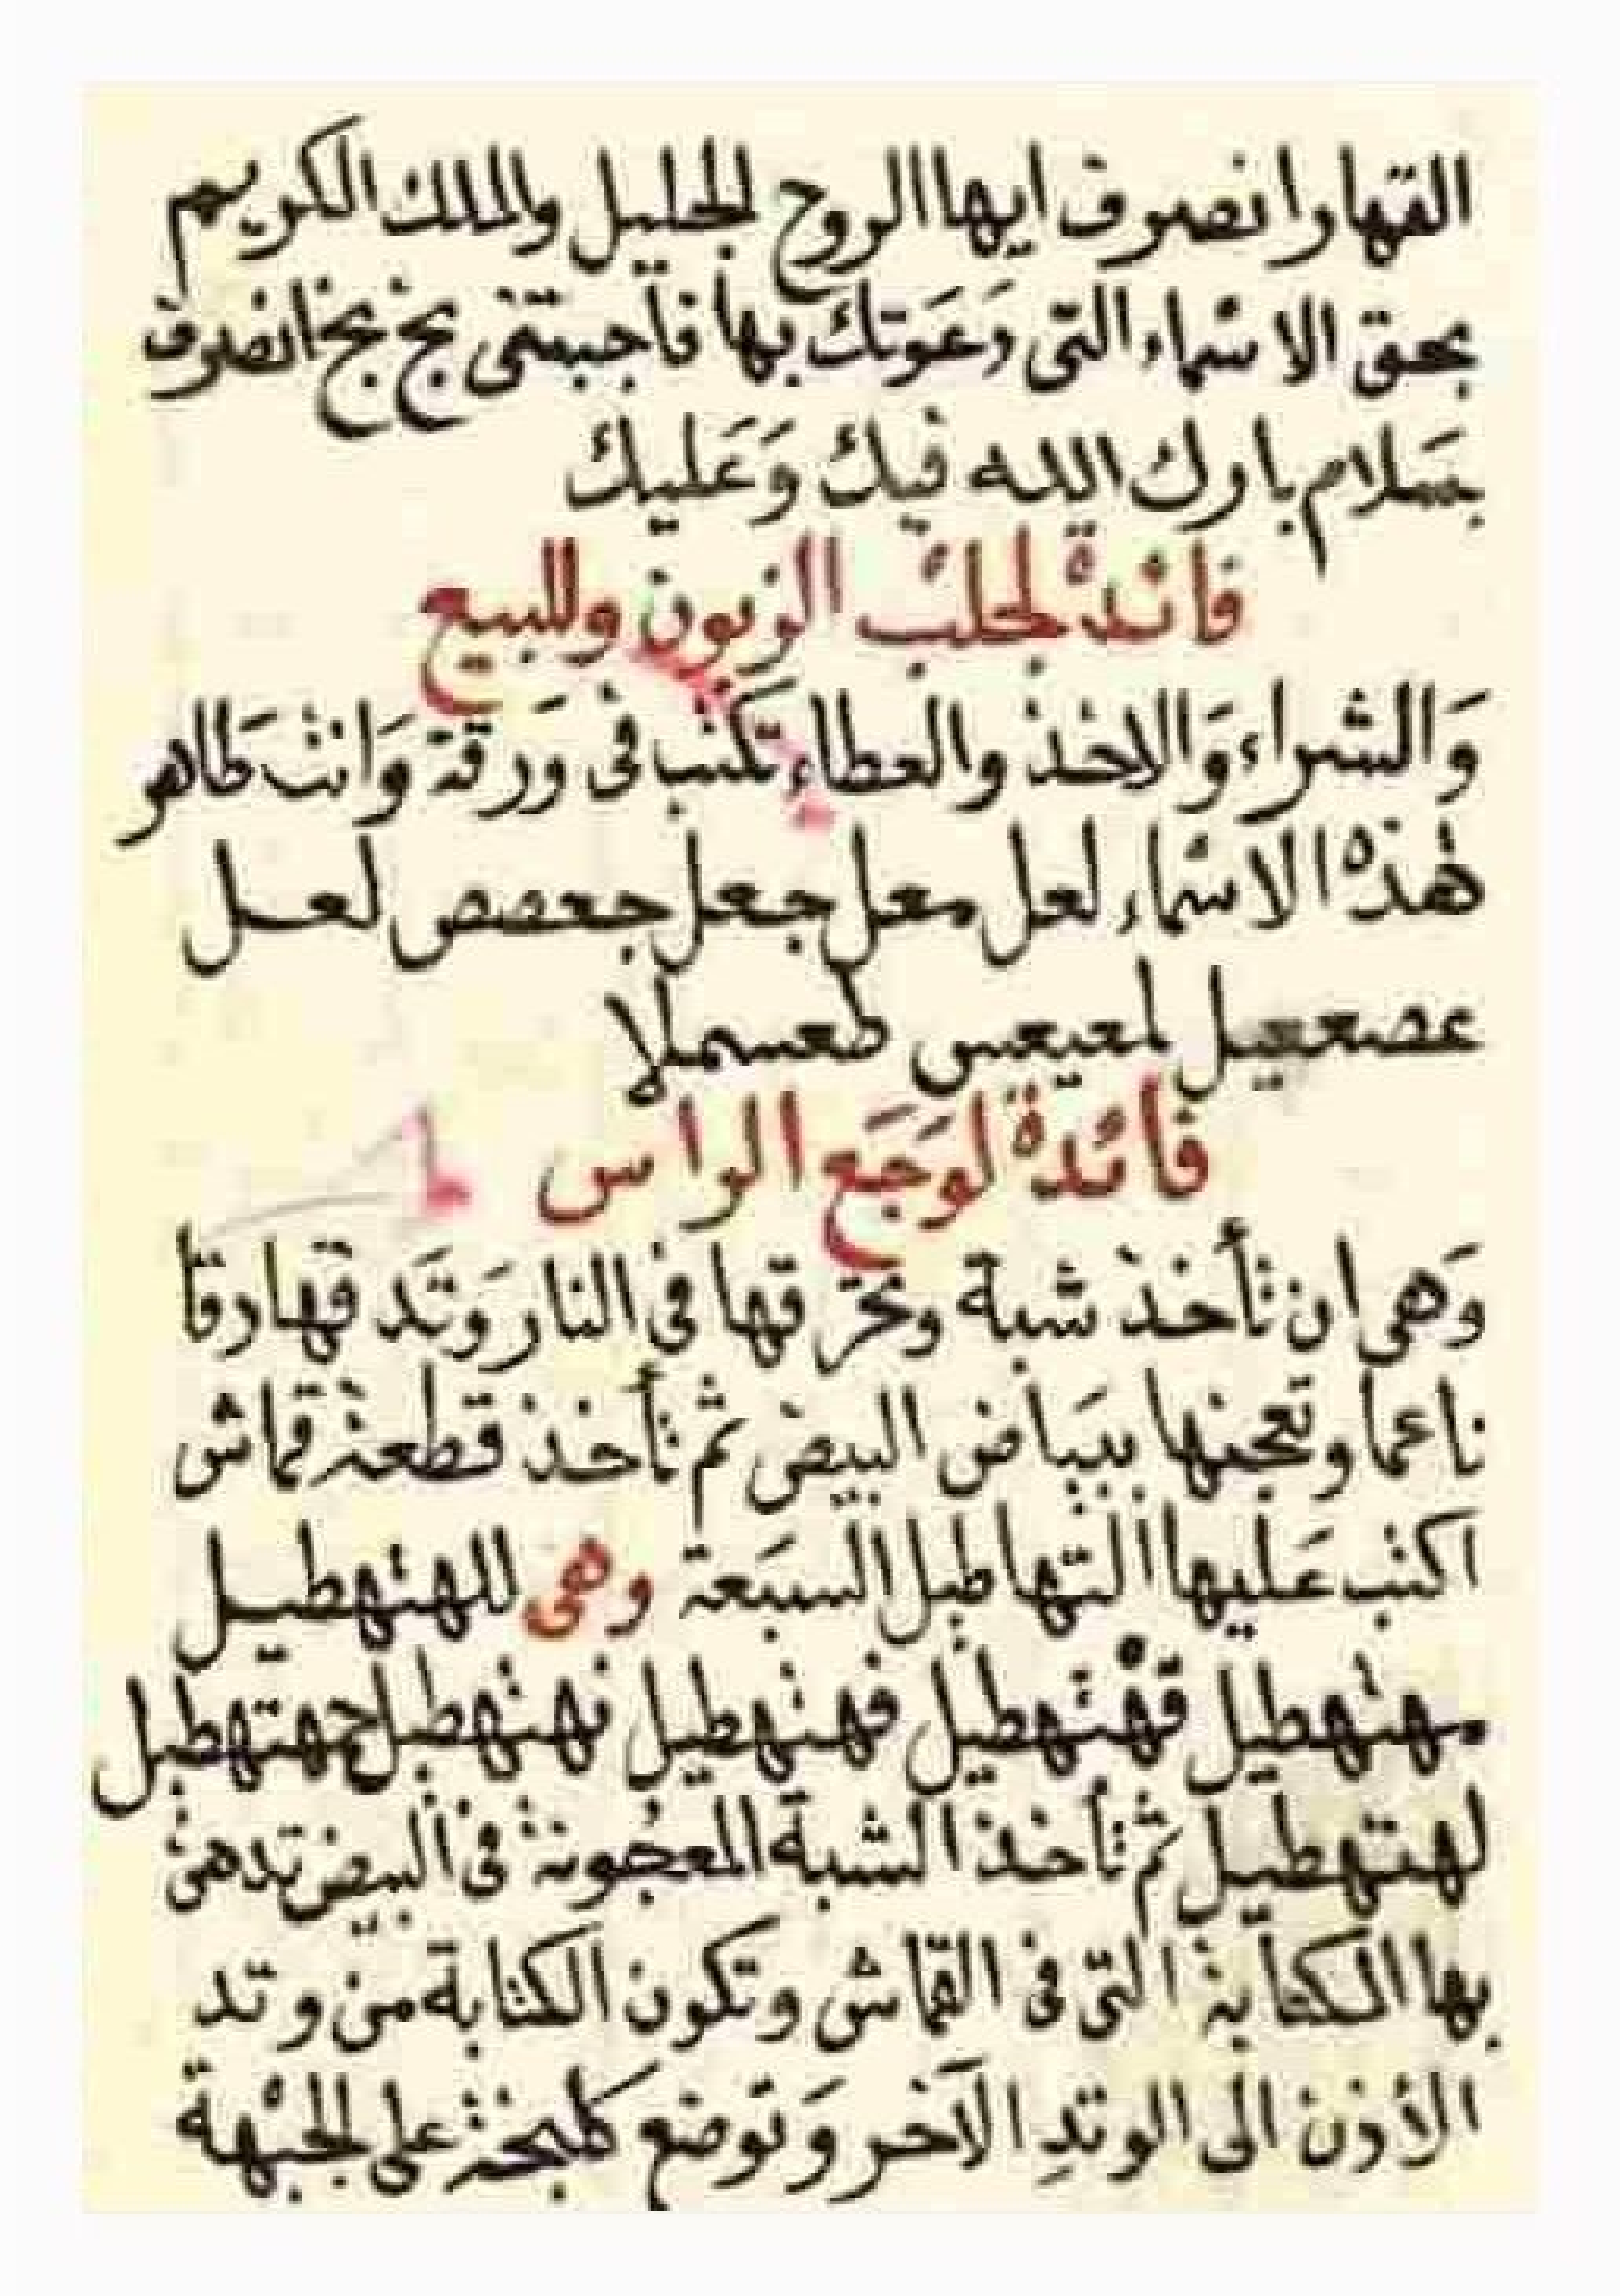 القهار انصرف ايها الروح الجليل والملك الكريم
بحق الاسماء التى دَعَوتك بها فاجبتنى بخ بخ انصرف
بسَلام بارك الله فيك وَعَليك
فائدة لجلب الزبون وللبيع
وَالشراء وَالاخذ والعطاء تكتب فى وَرقة وَانت طَاهر
هذه الاسماء لعل معل جعل جعصص لعل
عصعيل لمعيعس طعسملا
فائدة لوَجَع الراس
وَهى ان تأخذ شبة وتحرقها فى النار وَتَدقها دقا
ناعما وتعجنها ببيَاض البيض ثم تأخذ قطعة قماش
اكتب عَليها التهاطيل السبَعة وهى للهتهطيل
مهتهطيل قهتهطيل فهتهطيل نهتهطيل جهتهطيل
لهتهطيل ثم تأخذ الشبة المعجونة فى البيض تدهن
بها الكتابة التى فى القماش وتكون الكتابة من وتد
الأذن الى الوتدِ الآخر وَتوضع كلبخة على الجبهة